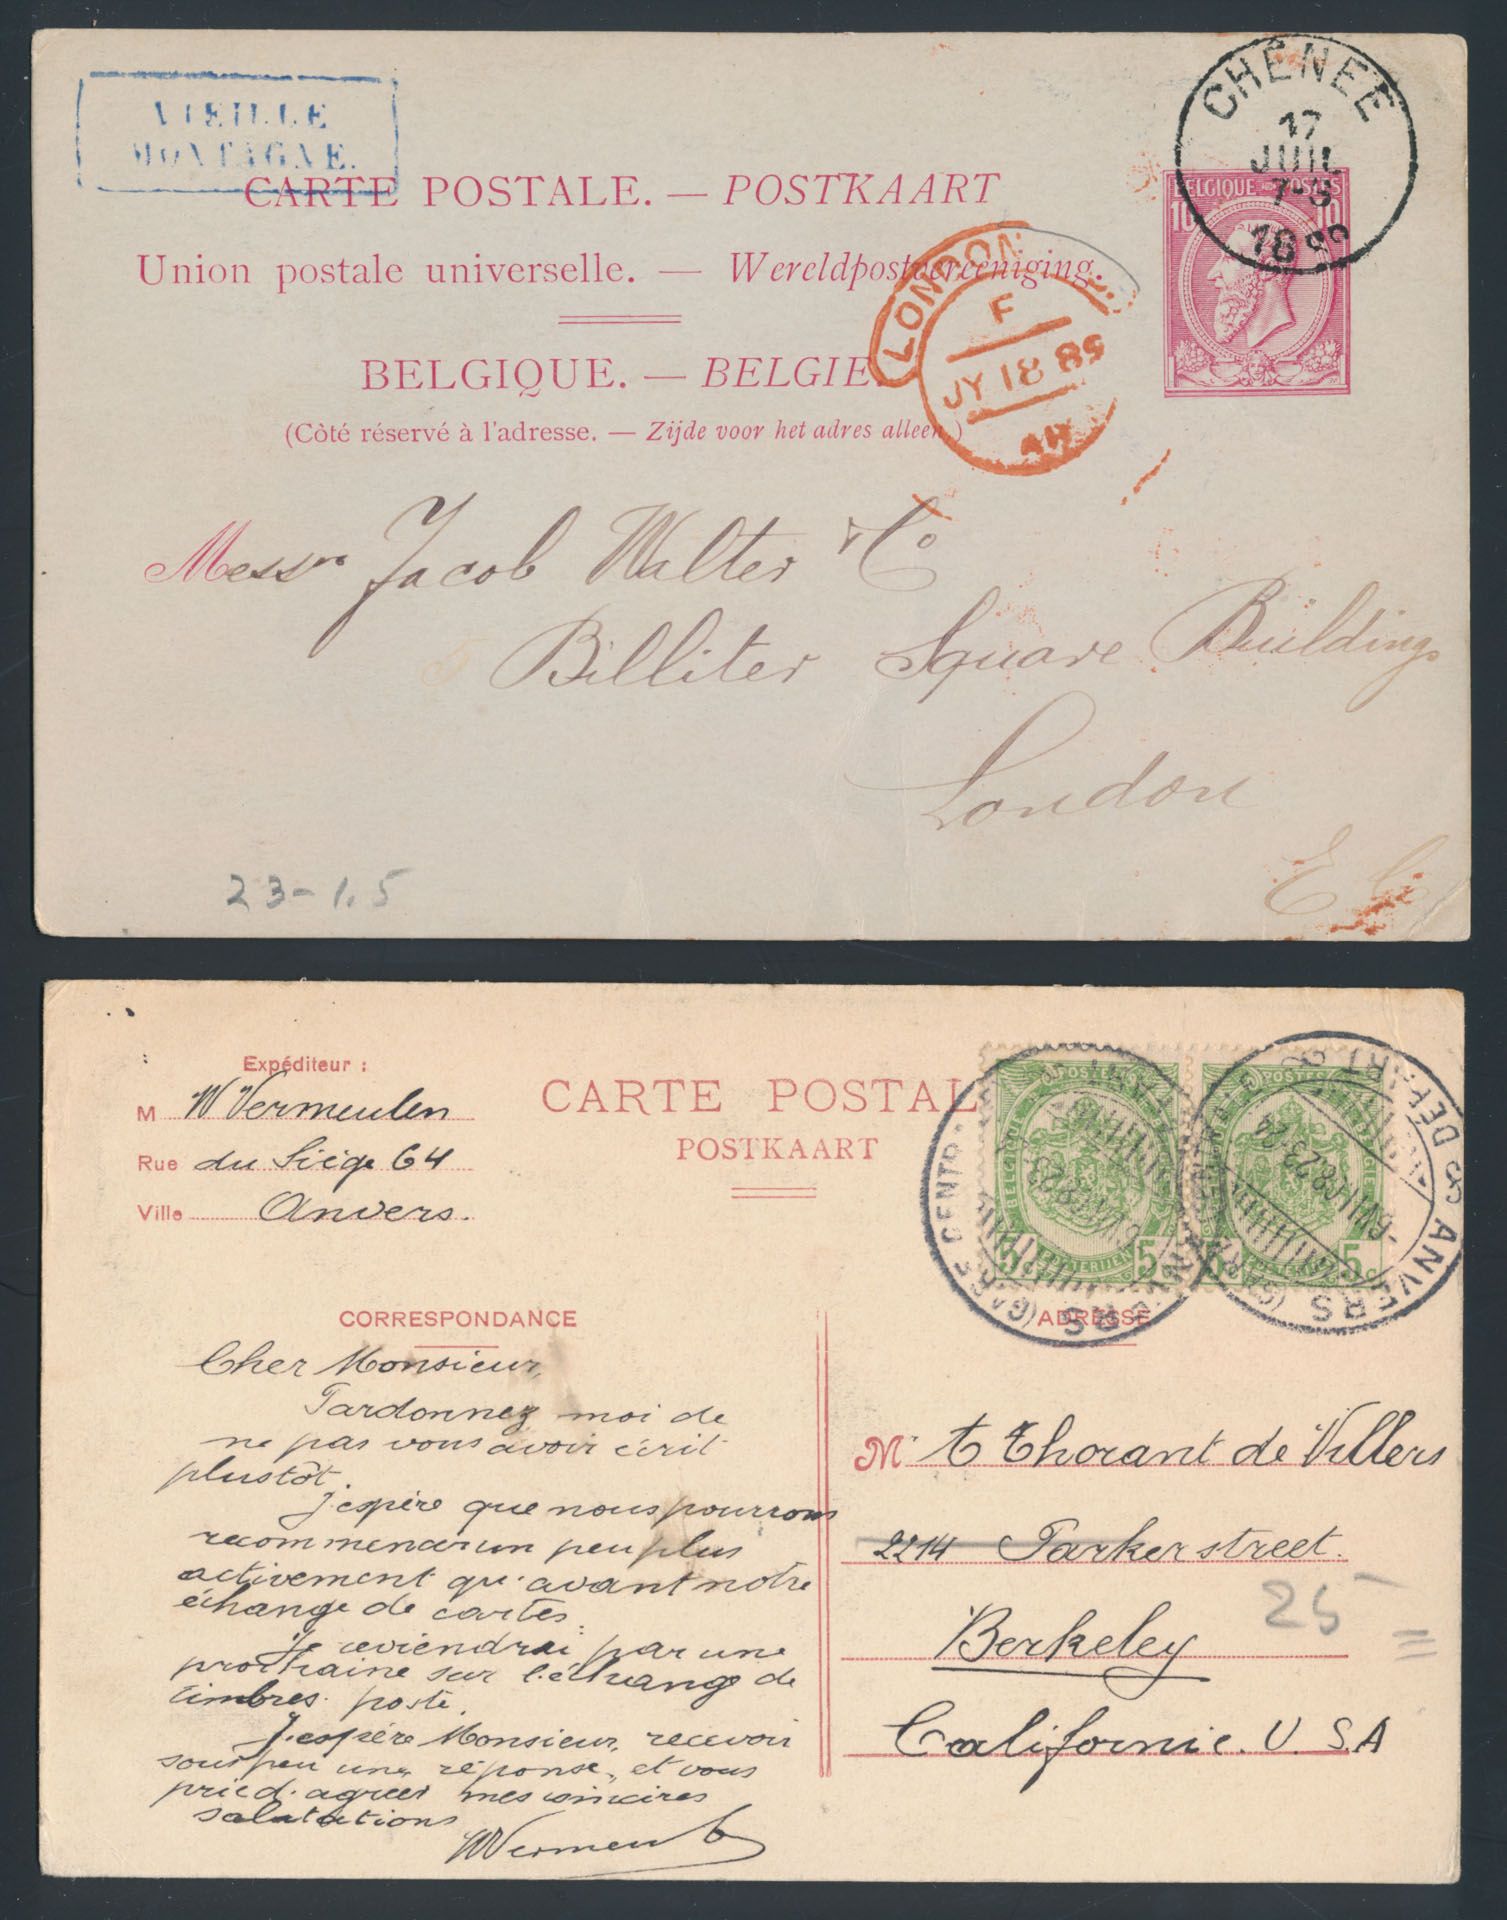 VIEILLE
MONTAGNE.
CHÊNÉE
17
JUIL
7-S
18
BELGIQUE POSTES
10 10
CARTE POSTALE. — POSTKAART
Union postale universelle. — Wereldpostvereeniging.
LONDON
F
JY 18 89
BELGIQUE. — BELGIE.
(Côté réservé à l'adresse. — Zijde voor het adres alleen.)
Messrs Jacob Walter & Co
5 Billiter Square Buildings
London
E C
23-1.5
Expéditeur :
M W Vermeulen
Rue du Siége 64
Ville Anvers.
CARTE POSTAL
POSTKAART
5 5
ANVERS DEPART
CORRESPONDANCE
Cher Monsieur,
Pardonnez moi de
ne pas vous avoir écrit
plustôt.
J'espère que nous pourrons
recommencer un peu plus
activement qu'avant notre
échange de cartes.
Je reviendrai par une
prochaine sur l'échange de
timbres-poste.
J'espère Monsieur, recevoir
sous peu une réponse, et vous
prie d'agréer mes sincères
salutations
WVermeul
ADRESSE
Mr A Thorant de Villers
2214 Parker street.
Berkeley
Californie. U. S. A
25